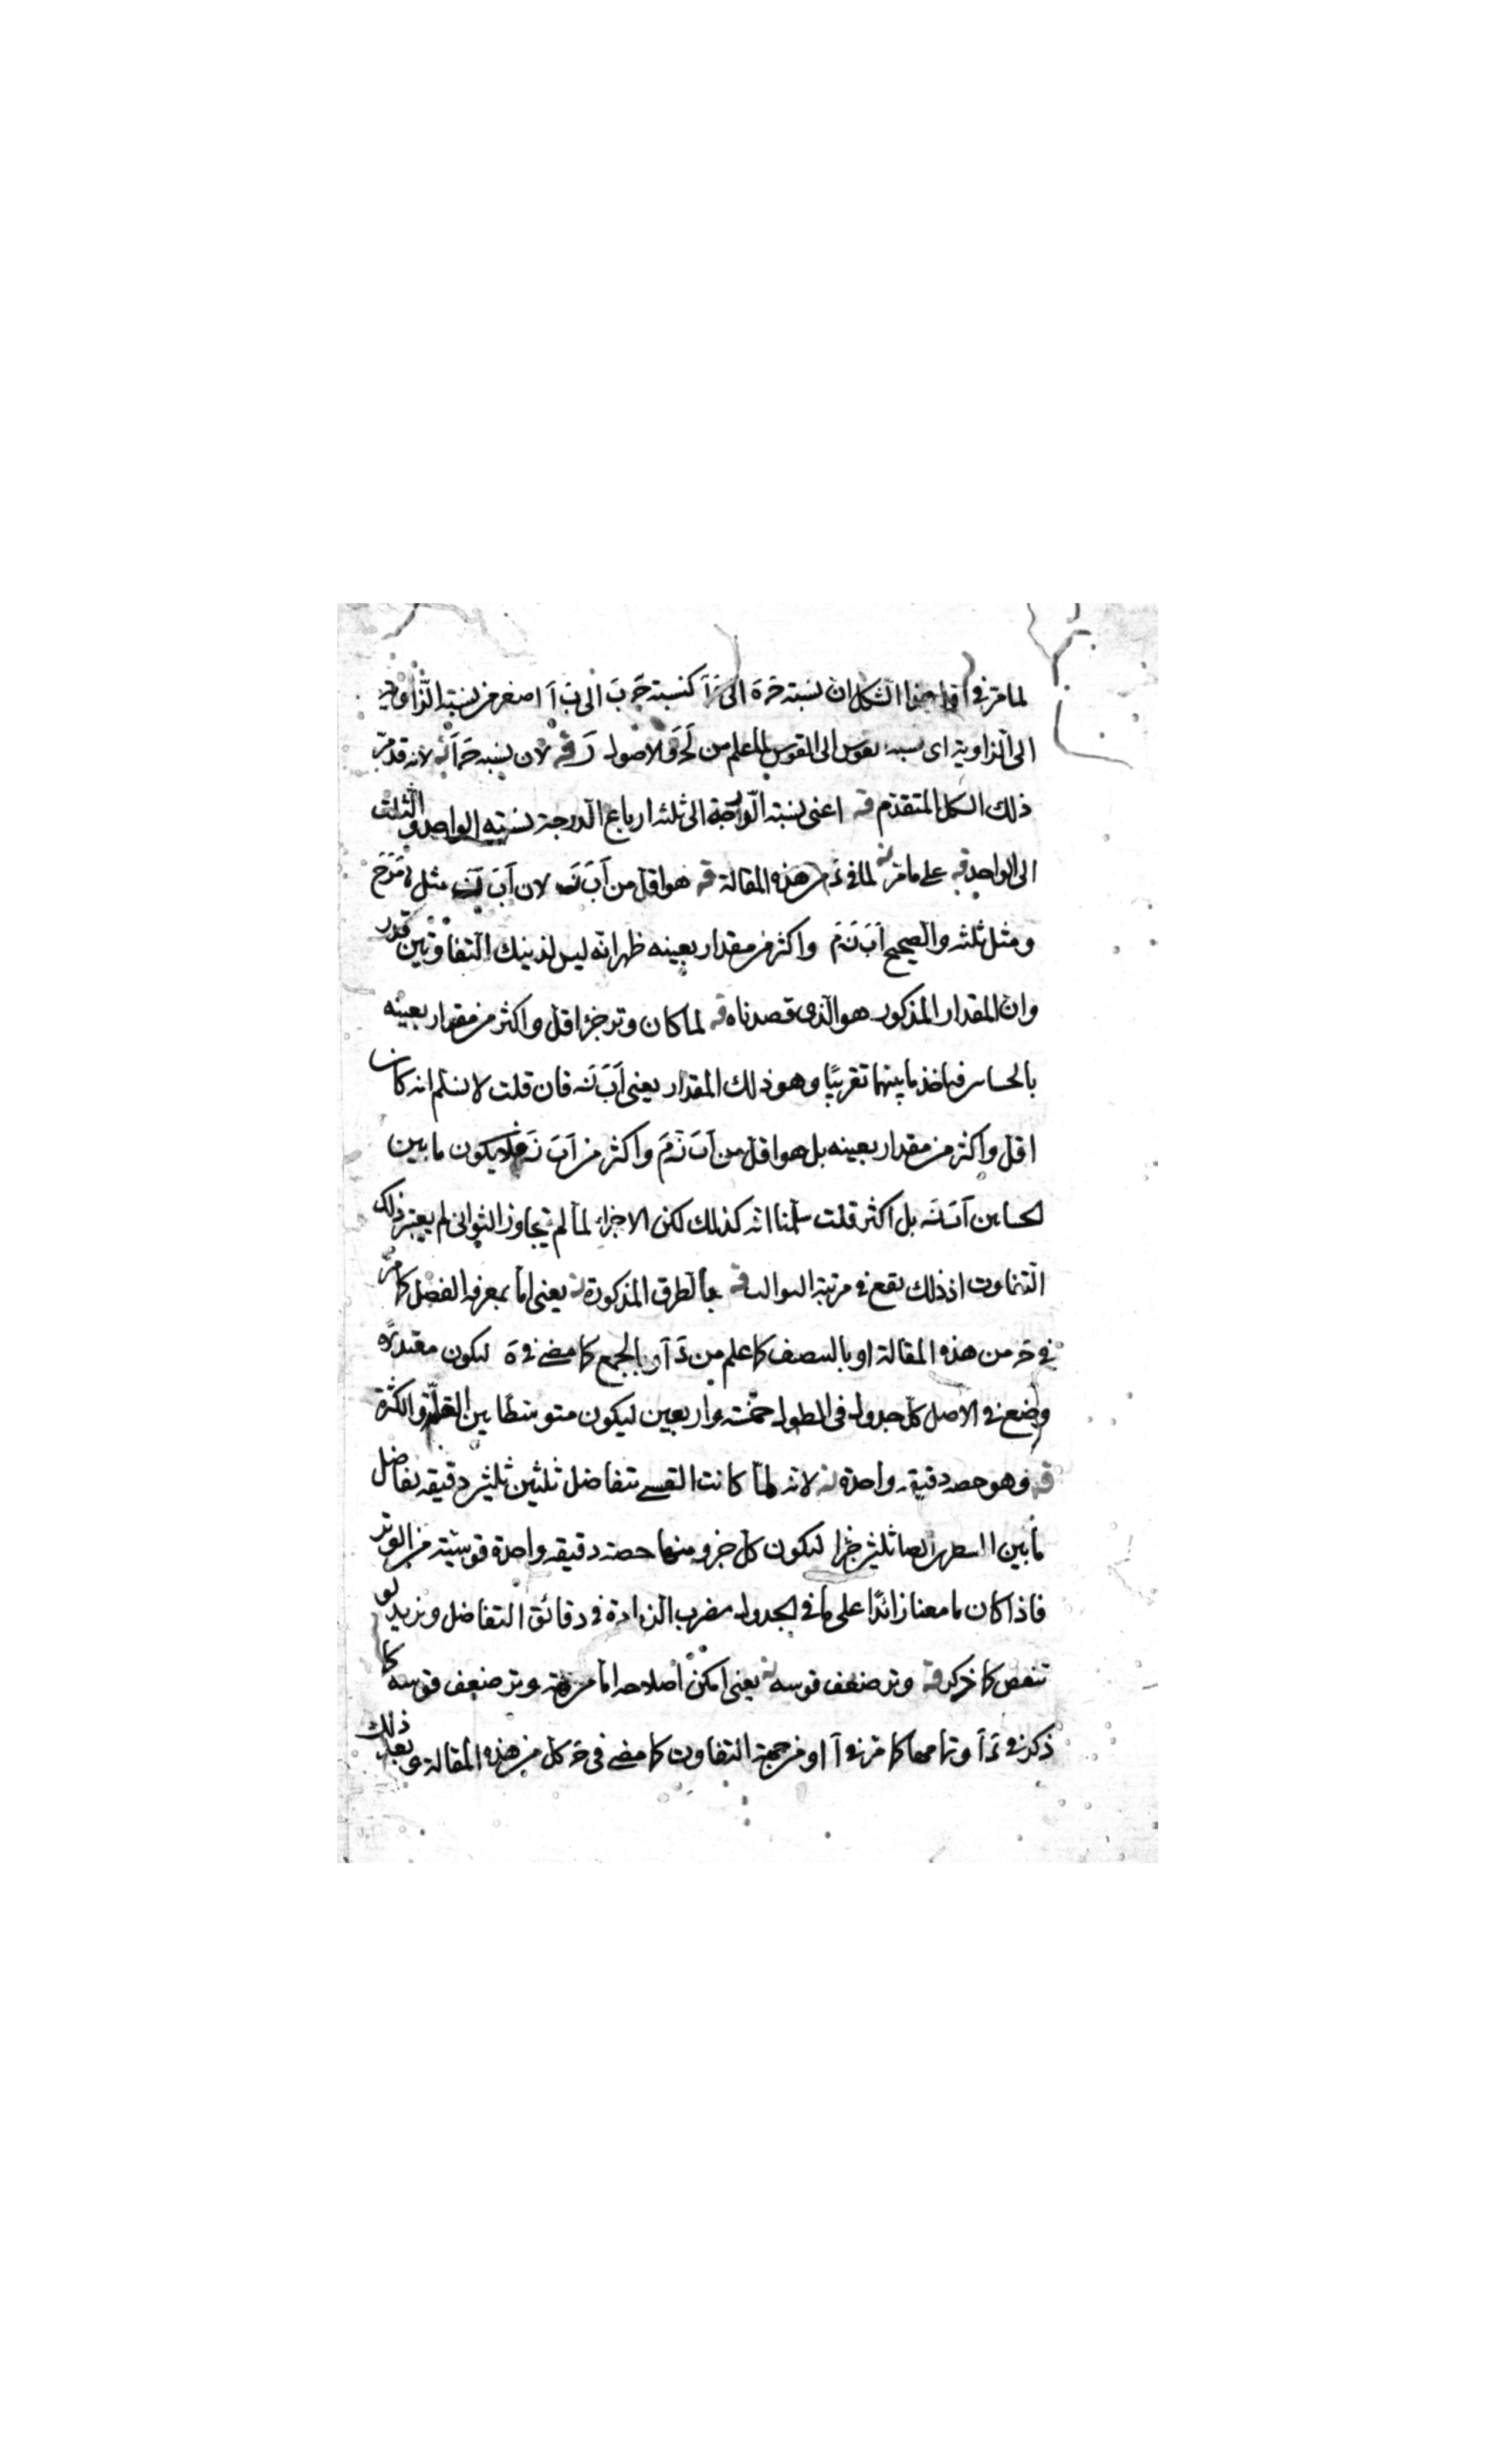 لما مر في الشكل ان نسبة حـ ه الى كنسبة حـ ب الى ب ا اصغر من نسبة الزاوية
الى الزاوية اى نسبة القوس الى القوس لما علم من والاصول قه لان نسبة لانه قد مر
ذلك الشكل المتقدم قه اعنى نسبة الدرجة الى ثلثه ارباع الدرجة نسبته الواحد والثلث
الى الواحد قه على ما مر لما فى من هذه المقالة قه هو اقل من اَ بَ نَه لان اَ بَ مثل
ومثل ثلثه والصحيح اَ بَ نَ مَ واكثر من مقدار بعينه ظهر انه ليس لذينك التفاوتين قدر
وان المقدار المذكور هو الذى قصدناه قه لما كان وتر جزء اقل واكثر من مقدار بعينه
بالحسابين فياخذ ما بينهما تقريبًا وهو ذلك المقدار يعنى اَ بَ نَه فان قلت لا نسلم انه كان
اقل واكثر من مقدار بعينه بل هو اقل من اَ بَ نَ مَ واكثر من اَ بَ نَه فلا يكون ما بين
الحسابين اَ بَ نَه بل اكثر قلت سلمنا انه كذلك لكن الاجزاء لما لم تتجاوز الثوانى لم يعتبر ذلك
التفاوت اذ ذلك يقع فى مرتبة الثوالث قه بالطرق المذكورة يعنى اما بمعرفة الفضل كما مر
فى حـ من هذه المقالة او بالتنصيف كما علم من دَ اَو بالجمع كما مضى فى هَ ليكون مقتدره
وضع فى الاصل كل جدول فى الطول خمسة واربعين ليكون متوسطًا بين القلة والكثرة
قه وهو حصه دقيقه واحدة لانه لما كانت القسى تتفاضل ثلثين ثلثين دقيقه تفاضل
ما بين السطرين ايضا ثلثين جزءا ليكون كل جزو منها حصة دقيقه واحدة قوسية من الوتر
فاذا كان ما معنا زائدًا على ما فى الجدول نضرب الزيادة فى دقائق التفاضل ونزيد او
ننقص كما ذكر قه وتر ضعف قوسه يعنى امكن اصلاحه اما من جهة وتر ضعف قوسه كما
ذكر فى دَ اَو تمامها كما مر فى اَ او من جهة التفاوت كما مضى فى حـ كل من هذه المقالة وبعد ذلك